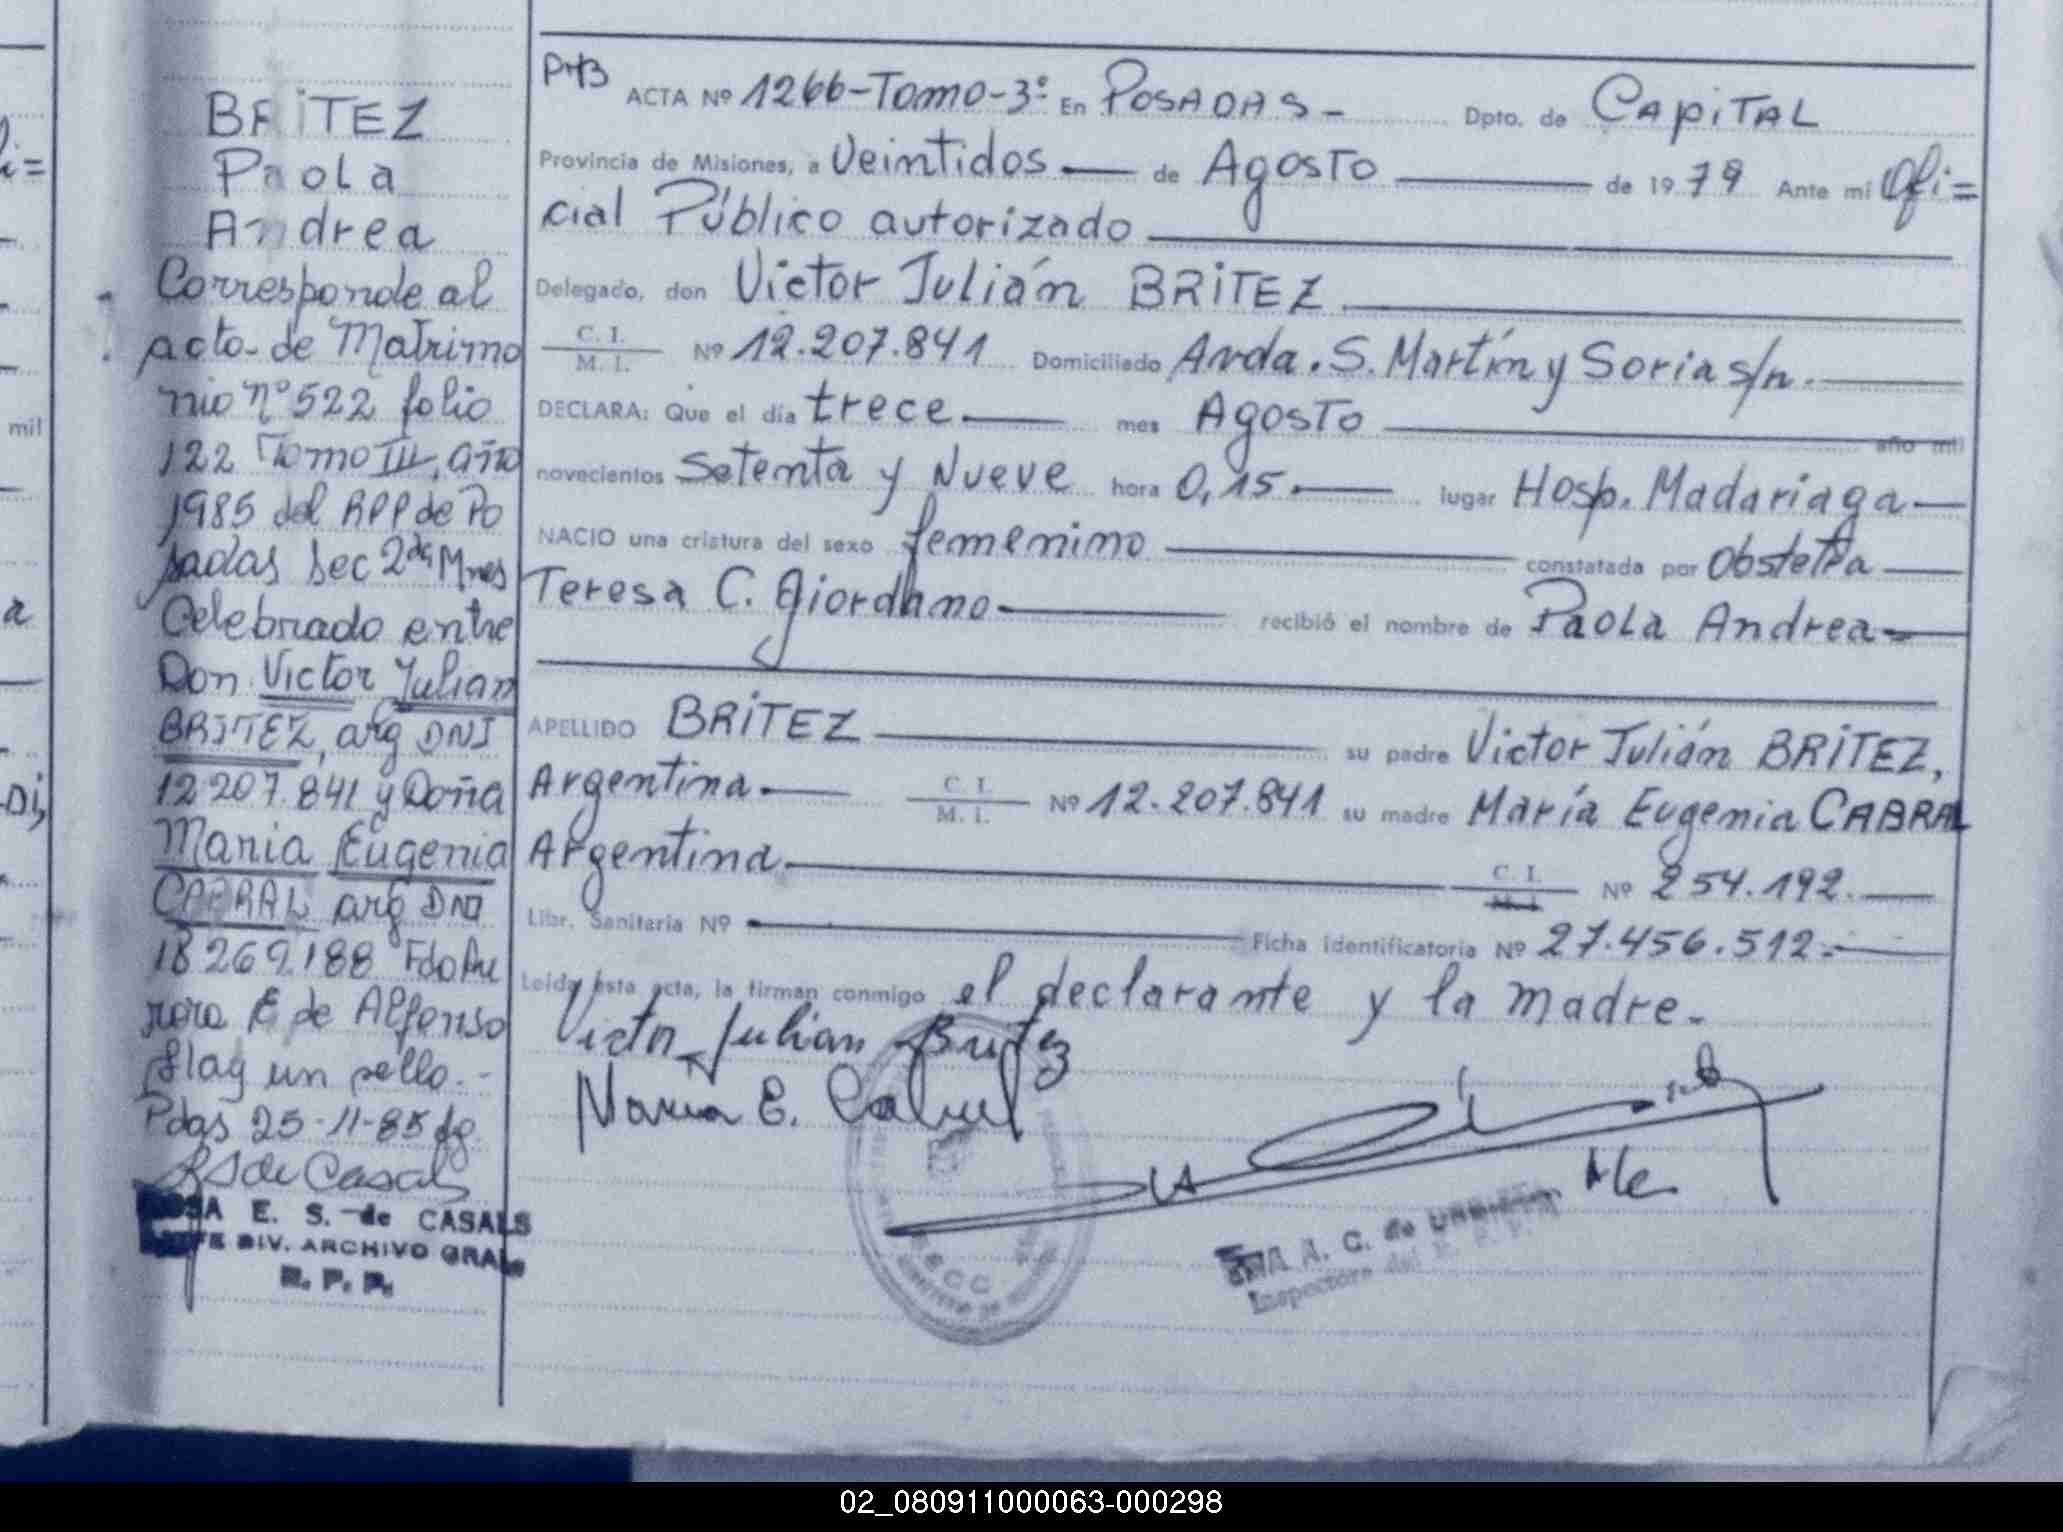 BRITEZ
Paola
Andrea
Corresponde al
acto de Matrimo
nio nº 522 folio
122 Tomo III, año
1985 del RPP de Po
sadas Sec 2da Mnes
Celebrado entre
Don Victor Julian
BRITEZ, arg DNI
12 207.841 y Doña
Maria Eugenia
CABRAL arg DNI
18 269.188 Fdo Au
rora E de Alfonso
Hay un sello.-
Pdas 25-11-85 fg
RS de Casals
E. S. de CASALS
DIV. ARCHIVO GRAL
R. P. P.
PHB
ACTA Nº 1266-Tomo-3º En POSADAS - Dpto. de CAPITAL
Provincia de Misiones, a Veintidos de Agosto de 1979 Ante mí Ofi=
cial Público autorizado
Delegado, don Victor Julián BRITEZ
C. I.
M. I. Nº 12.207.841 Domiciliado Avda. S. Martín y Soria s/n.
DECLARA: Que el día trece mes Agosto año mil
novecientos Setenta y Nueve hora 0,15. lugar Hosp. Madariaga
NACIO una criatura del sexo femenino constatada por Obstetra
Teresa C. Giordano recibió el nombre de Paola Andrea
APELLIDO BRITEZ su padre Victor Julián BRITEZ,
Argentina. C. I.
M. I. Nº 12.207.841 su madre María Eugenia CABRAL
Argentina. C. I.
M. I. Nº 254.192.
Libr. Sanitaria Nº Ficha identificatoria Nº 27.456.512.-
Leída esta acta, la firman conmigo el declarante y la madre.
Victor Julian Britez
Maria E. Cabral
A. C. de
Inspectora del
mil
a
02_080911000063-000298